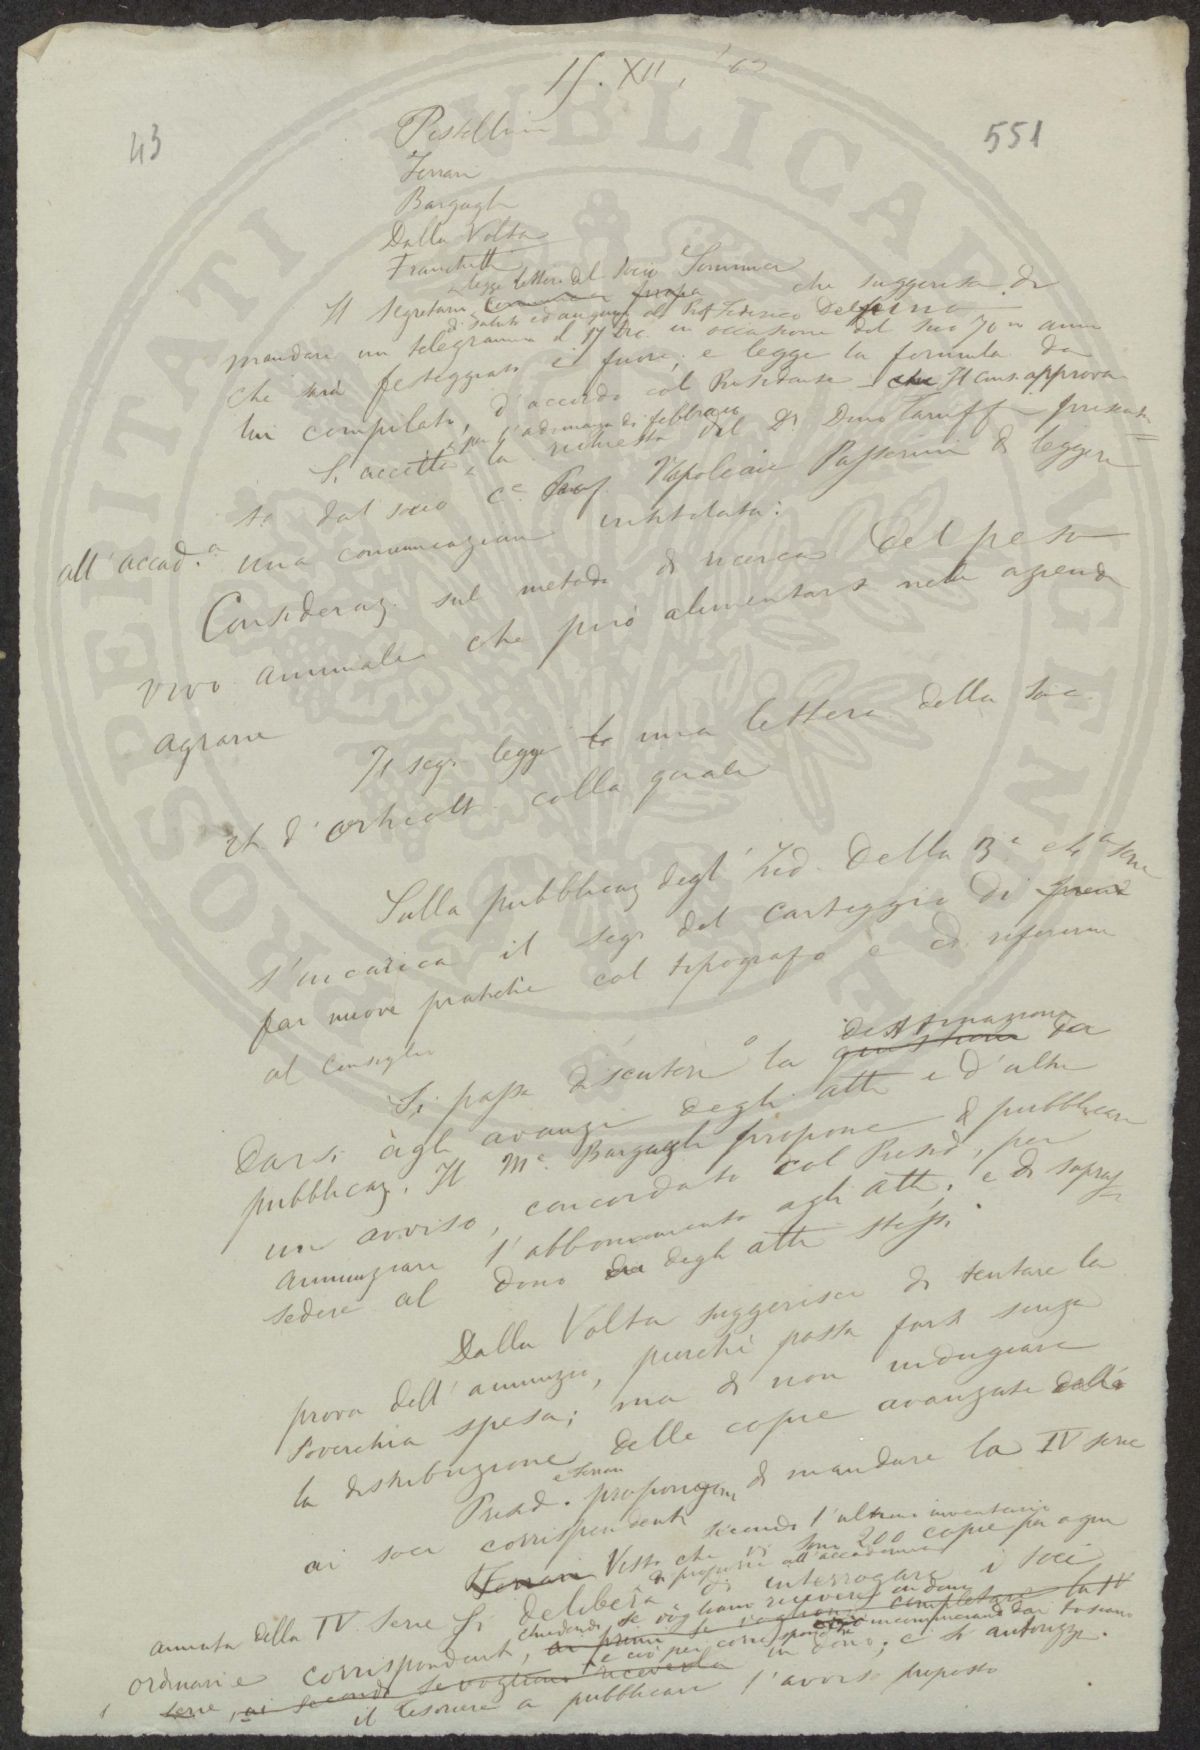 15. XII, '02
43
551
Pestellini
Ferrari
Bargagli
Dalla Volta
Franchetti
legge lettera del socio Sommier
Il Segretario che suggerisce di
di saluto ed augurio al Prof. Federico Delpino
mandare un telegramma il 17 Dic. in occasione del suo 70mo anno
che sarà festeggiato ; e legge la formula da
lui compilata, d'accordo col Presidente Il Cons. approva
per l'adunanza di febbraio
Si accetta la richiesta del Dr Dino Taruffi presenta=
ta dal socio Ce. Prof. Napoleone Passerini di leggere
all'accad.a una comunicazione intitolata:
Consideraz. sul metodo di ricerca del peso
vivo animale che può alimentarsi nelle aziende
agrarie
Il segr. legge una lettera della Soc.
d'orticolt. colla quale
Sulla pubblicaz. degl' Ind. della 3a e 4a serie
s'incarica il segr. del carteggio di
far nuove pratiche col tipografo e di riferirne
al Consiglio
destinazione
Si passa discutere la questione da
darsi agli avanzi degli atti e d'altre
pubblicaz. Il Me. Bargagli propone di pubblicare
un avviso, concordato col Presid., per
annunziare l'abbonamento agli atti, e di sopras-
sedere al dono degli atti stessi
Dalla Volta suggerisce di tentare la
prova dell'annunzio, purchè possa farsi senza
soverchia spesa; ma di non indugiare
la distribuzione delle copie avanzate
e Ferrari
Presid. propongono di mandare la IV serie
ai soci corrispondenti
Ferrari Visto che secondo l'ultimo inventario
vi sono 200 copie per ogni
annata della IV serie si delibera di proporre all'accademia
di interrogare i soci
ordinari e corrispondenti, chiedendo se vogliano ricevere in dono
ai primi se vogliono completare la IV
e ciò per corrispond. incominciando dai toscani
serie, ai secondi se vogliono riceverla in dono; e si autorizza
il tesoriere a pubblicare l'avviso proposto